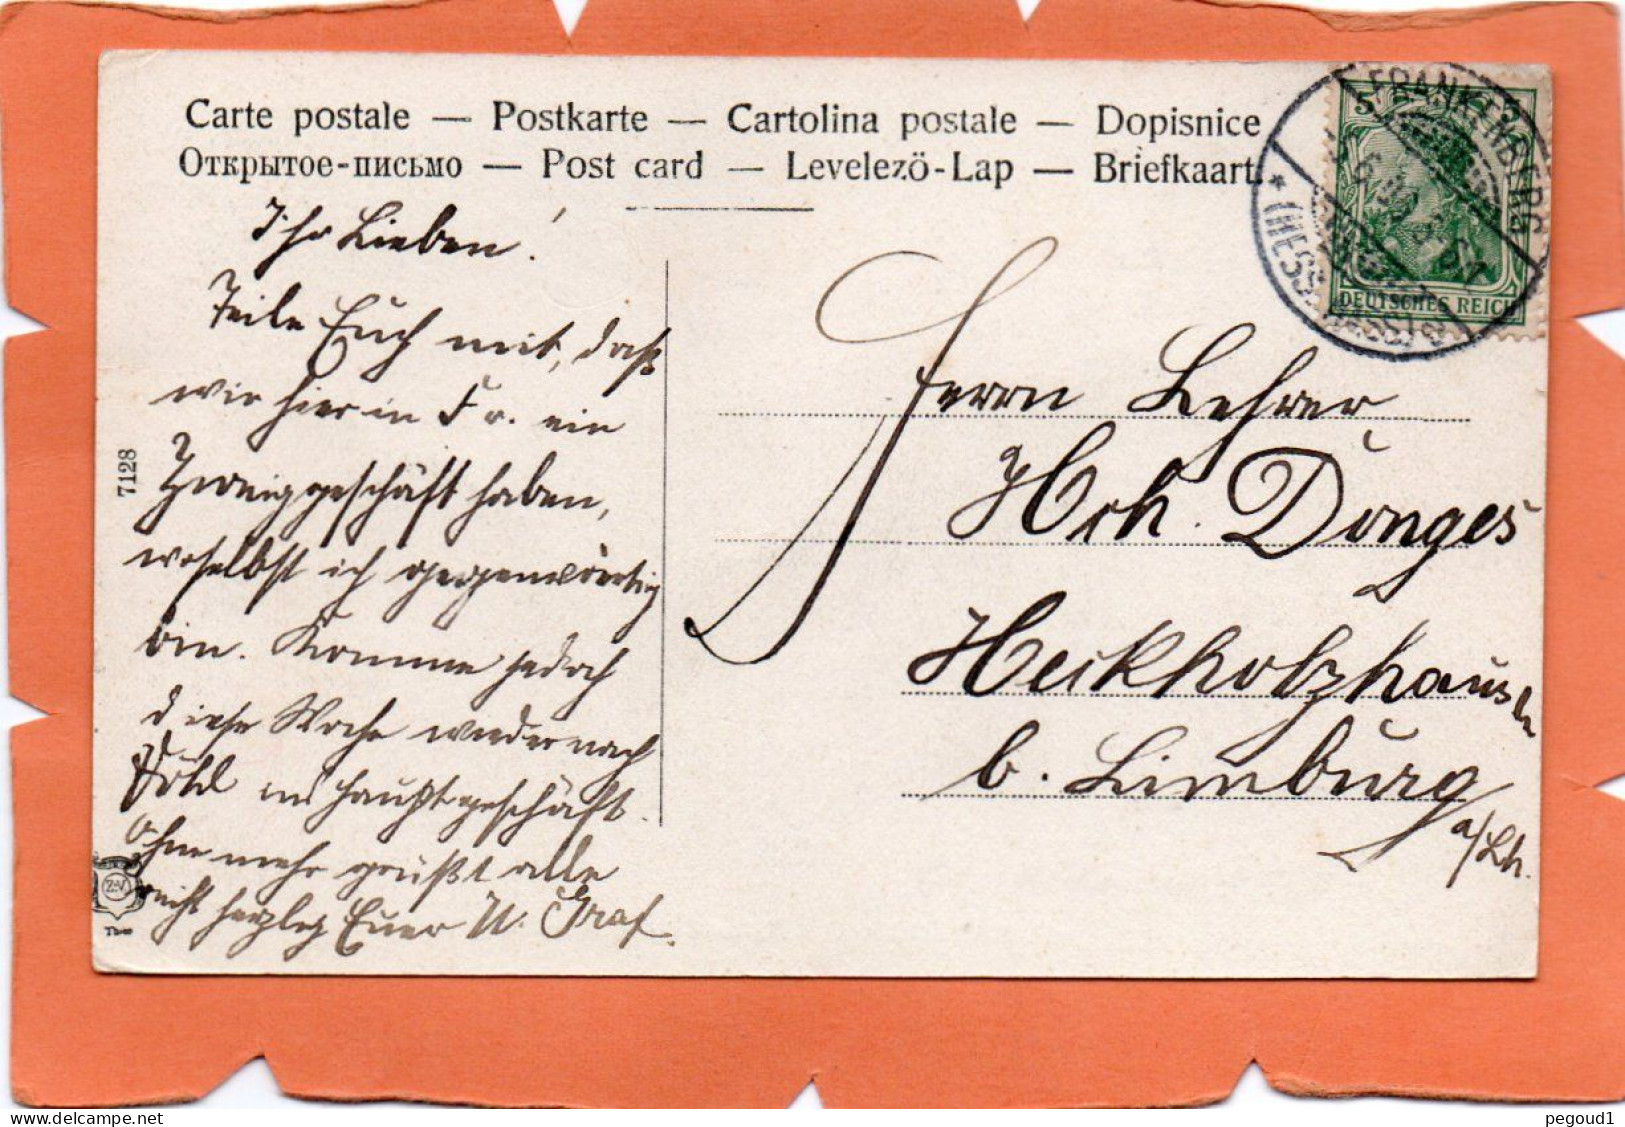 Carte postale — Postkarte — Cartolina postale — Dopisnice
Открытое-письмо — Post card — Levelező-Lap — Briefkaart
Ihr Lieben!
Teile Euch mit, daß
wir hier in Fr. ein
Zweiggeschäft haben,
woselbst ich gegenwärtig
bin. Komme jedoch
diese Woche wieder nach
ins Hauptgeschäft.
Ohne mehr grüßt alle
recht herzlich Euer W. Graf.
7128
Z.V.
5
DEUTSCHES REICH
FRANKENBERG
* (HESS.
Herrn Lehrer
Hch. Dönges
Heckholzhausen
b. Limburg
a/Lh.
delcampe.net
pegoud1